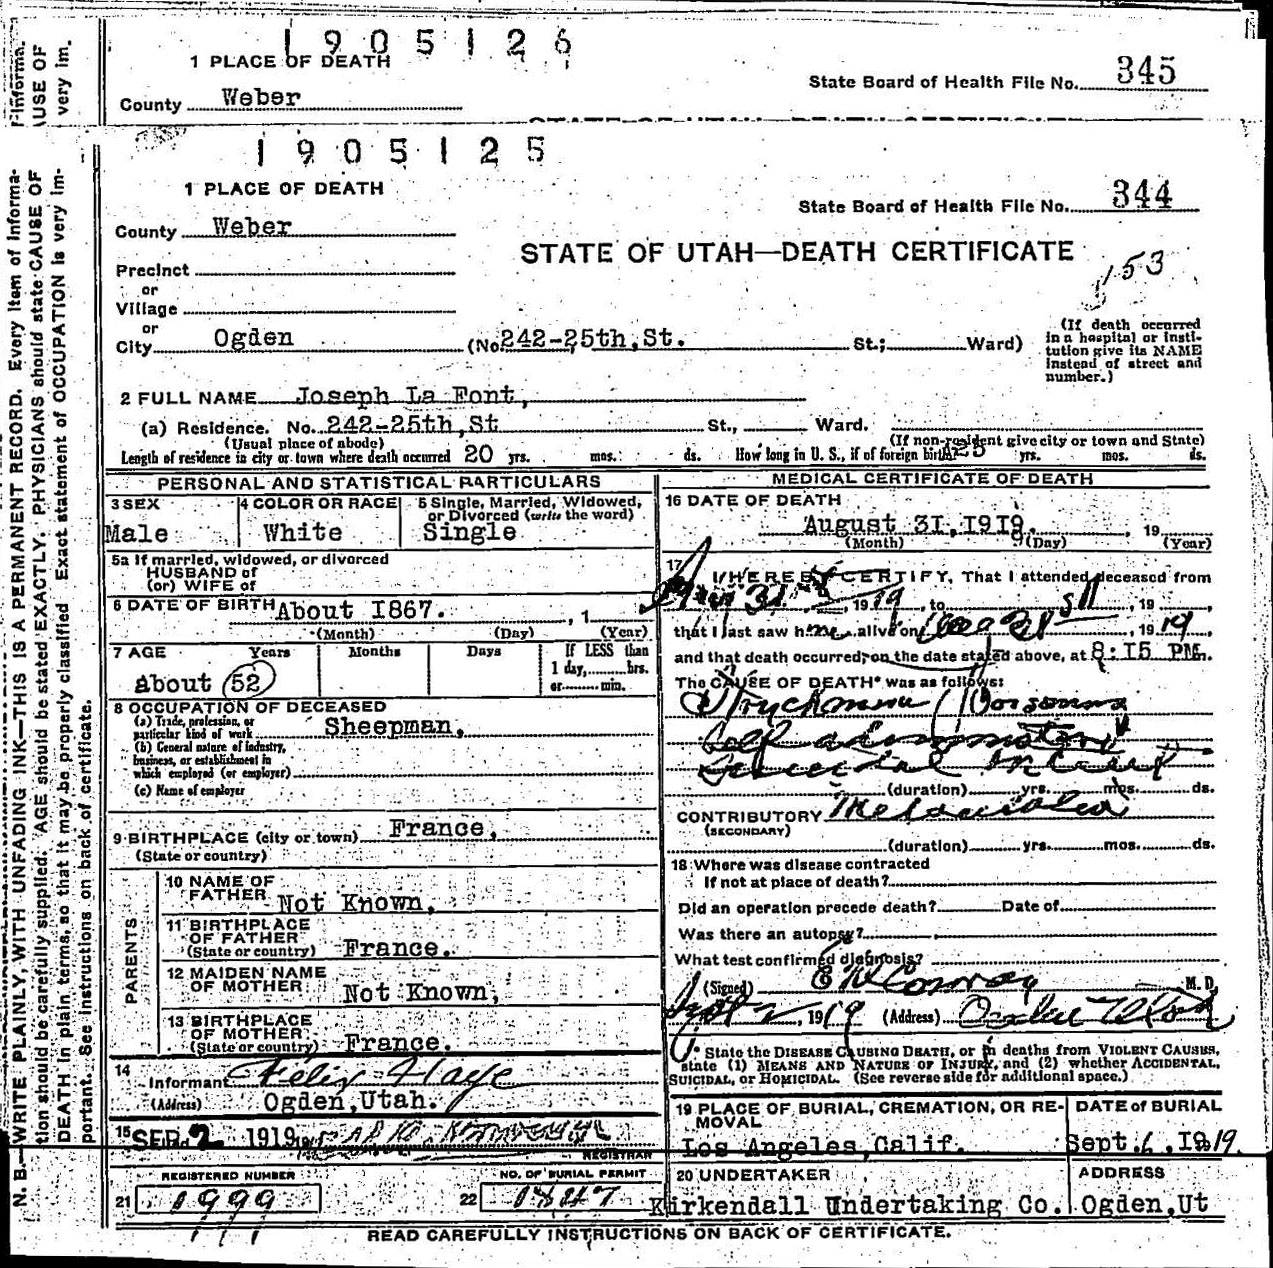 1905126
1 PLACE OF DEATH
State Board of Health File No. 345
County Weber
1905125
1 PLACE OF DEATH
State Board of Health File No. 344
County Weber
STATE OF UTAH—DEATH CERTIFICATE
153
Precinct
or
Village
or
City Ogden (No. 242-25th, St. St.; Ward)
(If death occurred
in a hospital or insti-
tution give its NAME
instead of street and
number.)
2 FULL NAME Joseph La Font,
(a) Residence. No. 242-25th, St St., Ward.
(Usual place of abode) (If non-resident give city or town and State)
Length of residence in city or town where death occurred 20 yrs. mos. ds. How long in U. S., if of foreign birth? 25 yrs. mos. ds.
PERSONAL AND STATISTICAL PARTICULARS
3 SEX
Male
4 COLOR OR RACE
White
5 Single, Married, Widowed,
or Divorced (write the word)
Single
5a If married, widowed, or divorced
HUSBAND of
(or) WIFE of
6 DATE OF BIRTH About 1867. , 1
(Month) (Day) (Year)
7 AGE Years Months Days If LESS than
1 day, hrs.
or min.
About 52
8 OCCUPATION OF DECEASED
(a) Trade, profession, or
particular kind of work Sheepman,
(b) General nature of industry,
business, or establishment in
which employed (or employer)
(c) Name of employer
9 BIRTHPLACE (city or town) France,
(State or country)
PARENTS
10 NAME OF
FATHER Not Known,
11 BIRTHPLACE
OF FATHER
(State or country) France.
12 MAIDEN NAME
OF MOTHER Not Known,
13 BIRTHPLACE
OF MOTHER
(State or country) France.
14
Informant Felix Haye
(Address) Ogden, Utah.
15 SEP 2 1919
REGISTRAR
REGISTERED NUMBER
21 1999
NO. OF BURIAL PERMIT
22 1847
MEDICAL CERTIFICATE OF DEATH
16 DATE OF DEATH
August 31, 1919. , 19
(Month) (Day) (Year)
17
I HEREBY CERTIFY, That I attended deceased from
Aug 31 , 1919 , to , 19
that I last saw him alive on Aug 31st , 1919 ,
and that death occurred, on the date stated above, at 8:15 PM.m.
The CAUSE OF DEATH* was as follows:
Strychnine Poisoning
Self administered
Suicidal intent
(duration) yrs. mos. ds.
CONTRIBUTORY Melancholia
(SECONDARY)
(duration) yrs. mos. ds.
18 Where was disease contracted
If not at place of death?
Did an operation precede death? Date of
Was there an autopsy?
What test confirmed diagnosis?
(Signed) E H Conroy M. D.
Sept 2, 1919 (Address) Ogden Utah
* State the DISEASE CAUSING DEATH, or in deaths from VIOLENT CAUSES,
state (1) MEANS AND NATURE OF INJURY, and (2) whether ACCIDENTAL,
SUICIDAL, or HOMICIDAL. (See reverse side for additional space.)
19 PLACE OF BURIAL, CREMATION, OR RE-
MOVAL
Los Angeles, Calif.
DATE of BURIAL
Sept. 6, 1919.
20 UNDERTAKER
Kirkendall Undertaking Co.
ADDRESS
Ogden, Ut
READ CAREFULLY INSTRUCTIONS ON BACK OF CERTIFICATE.
N. B.—WRITE PLAINLY, WITH UNFADING INK—THIS IS A PERMANENT RECORD. Every item of informa-
tion should be carefully supplied. AGE should be stated EXACTLY. PHYSICIANS should state CAUSE OF
DEATH in plain terms, so that it may be properly classified. Exact statement of OCCUPATION is very im-
portant. See instructions on back of certificate.